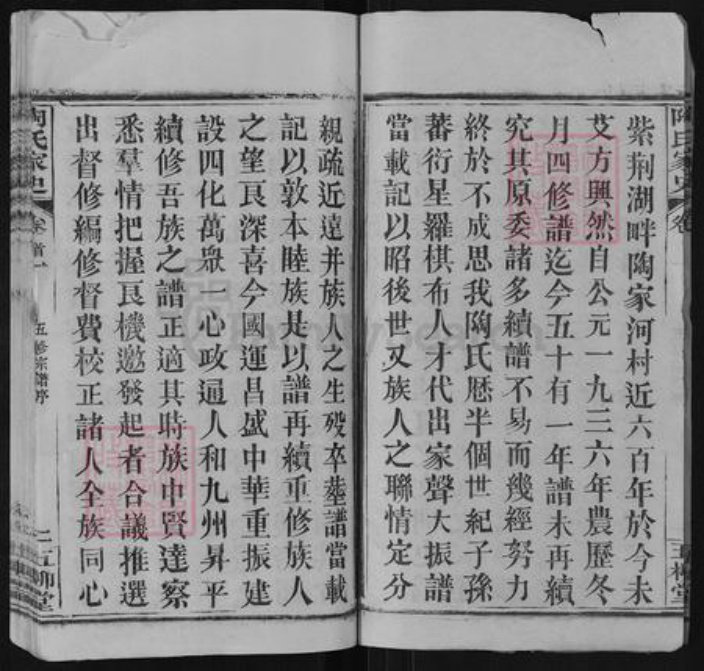 紫荆湖畔陶家河村近六百年於今未
艾方興然自公元一九三六年農歷冬
月四修譜迄今五十有一年譜未再續
究其原委諸多續譜不易而幾經努力
終於不成思我陶氏歷半個世紀子孫
蕃衍星羅棋布人才代出家聲大振譜
當載記以昭後世又族人之聯情定分
親疏近遠并族人之生殁卒塟譜當載
記以敦本睦族是以譜再續重修族人
之望良深喜今國運昌盛中華重振建
設四化萬眾一心政通人和九州昇平
續修吾族之譜正適其時族中賢達察
悉羣情把握良機邀發起者合議推選
出督修編修督費校正諸人全族同心
陶氏家史
卷首一
五修宗譜序
二五柳堂
FamilySearch